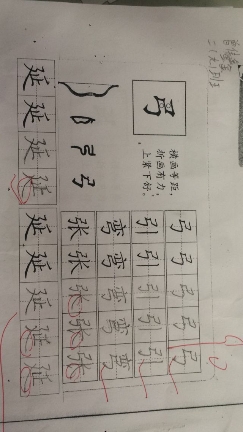 弓
横画等距，
折画有力，
上紧下舒。
弓弓弓弓弓
引引引引引
弯弯弯弯弯
张张张张张
延延延延延延延延延